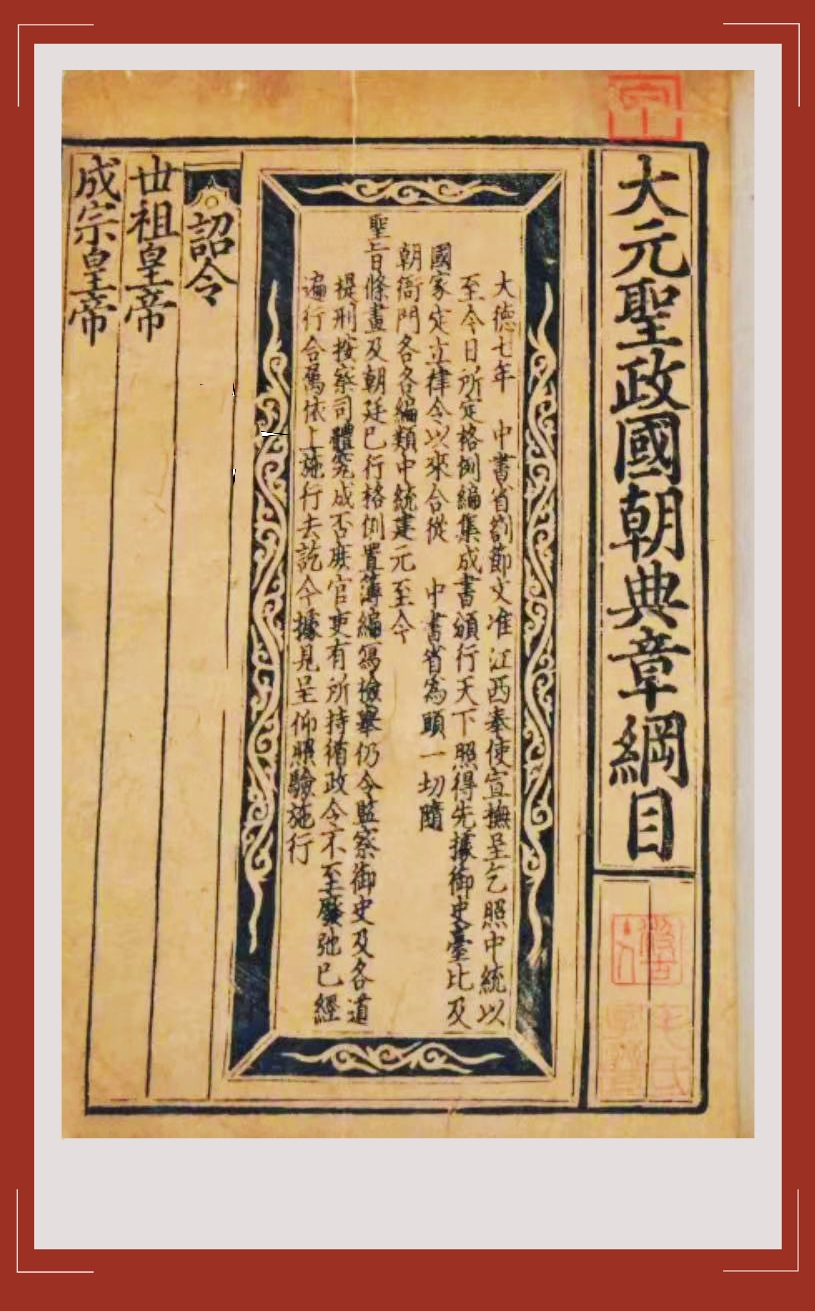 大元聖政國朝典章綱目
大德七年　中書省劄節文准江西奉使宣撫呈乞照中統以
至今日所定格例編集成書頒行天下照得先據御史臺比及
國家定立律令以來合從　中書省為頭一切隨
朝衙門各各編類中統建元至今
聖旨條畫及朝廷已行格例置簿編寫檢舉仍令監察御史及各道
提刑按察司體究成否庶官吏有所持循政令不至廢弛已經
遍行合屬依上施行去訖今據見呈仰照驗施行
詔令
世祖皇帝
成宗皇帝